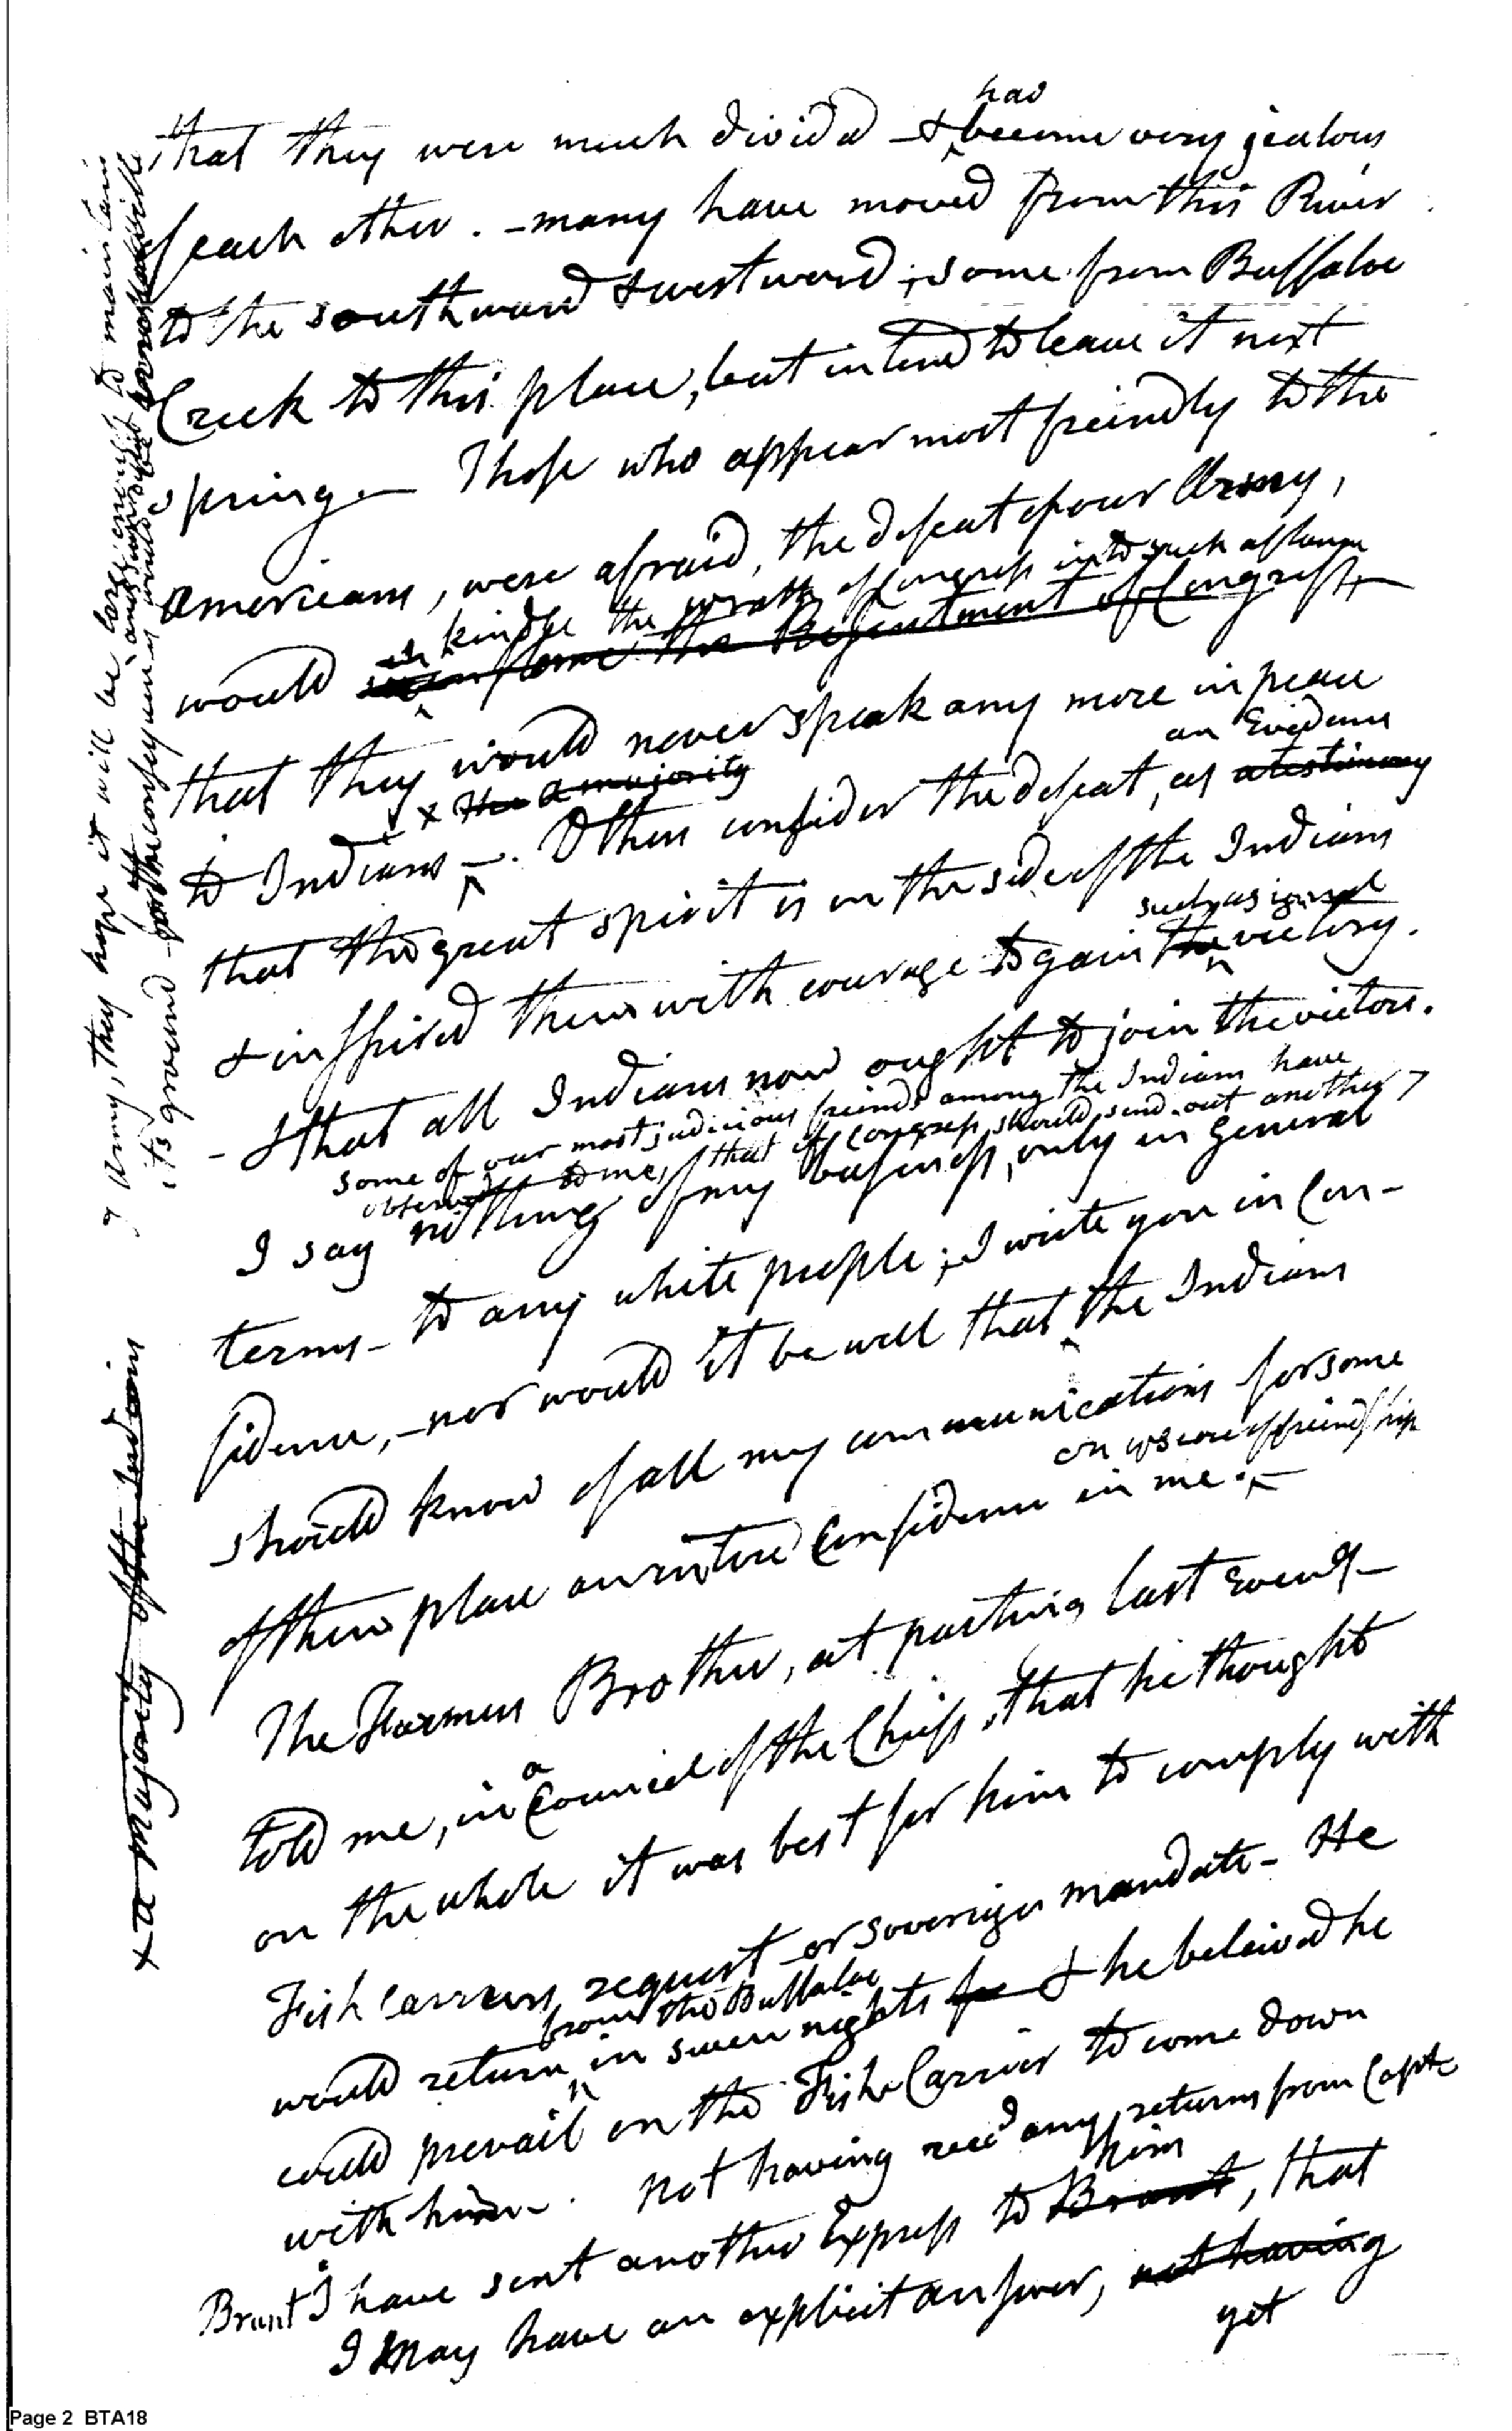 had
that they were much divided & become very jealous
of each other. - many have moved from this River
to the southward & westward; some from Buffaloe
Creek to this place, but intend to leave it next
spring — Those who appear most freindly to the
Americans, were afraid, the defeat of our Army,
kindle the wrath of Congress into such a flame
would inflame the Resentment of Congress
that they would never speak any more in peace
an Evidence
x a majority
to Indians —. Others consider the defeat, as a testimony
that the great spirit is on the side of the Indians
such a signal
& inspired them with courage to gain the victory.
- & that all Indians now ought to join the victors.
some of our most judicious freinds among the Indians have
observed to me, that if Congress should send out another
I say nothing of my business, only in General
terms - to any white people; I write you in Con-
fidence, - nor would it be well that the Indians
should know of all my communications for some
on ys score of freindship
of them place an entire Confidence in me. —
The Farmers Brother, at parting last eveng -
a
told me, in Council of the Chiefs, that he thought
on the whole it was best for him to comply with
Fish Carriers request - or sovereign mandate - He
from the Buffaloe
would return in seven nights for & he beleived he
could prevail on the Fish Carrier to come down
with him -. Not having recd any returns from Capt
him
Brant I have sent another Express to Brant, that
I may have an explicit answer, not having
yet
army, they hope it will be large enough to maintain
its ground - for the consequences would be
x a majority of the Indians
Page 2 BTA18